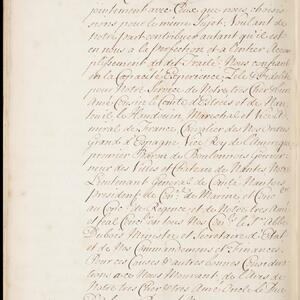 jointement avec Ceux que nous choisis-
sions pour le même Sujet, Voulant de
Notre part contribuer autant qu'il est
en nous a la perfection et a l'entier Accom-
plissement dudit Traité; Nous confiant
en la Capacité Experience, Zele & Fidelité
pour Notre Service de Notre tres Cher et bien
Amé Cousin le Comte d'Estrees et de Nan-
teuil le Haudouin Marechal et Vice Ad-
miral de France, Chevalier des Nos Ordres
Grand d'Espagne, Vice Roy de l'Amerique
premier Baron du Boulonnois Gouver-
neur des Villes et Chateau de Nantes Notre
Lieutenant General du Comté Nantois
president du Con. de Marine, et Con.
Con. de Regence et de Notre tres Amé
et feal Con. en tous Nos Con. le S. Abbé
Dubois Ministre et Secretaire d'Etat
et de Nos Commandemens et Finances.
Pour ces Causes et autres bonnes Considé-
rations a ce Nous Mouvant, de l'avis de
Notre tres Cher et tres Amé Oncle le Duc